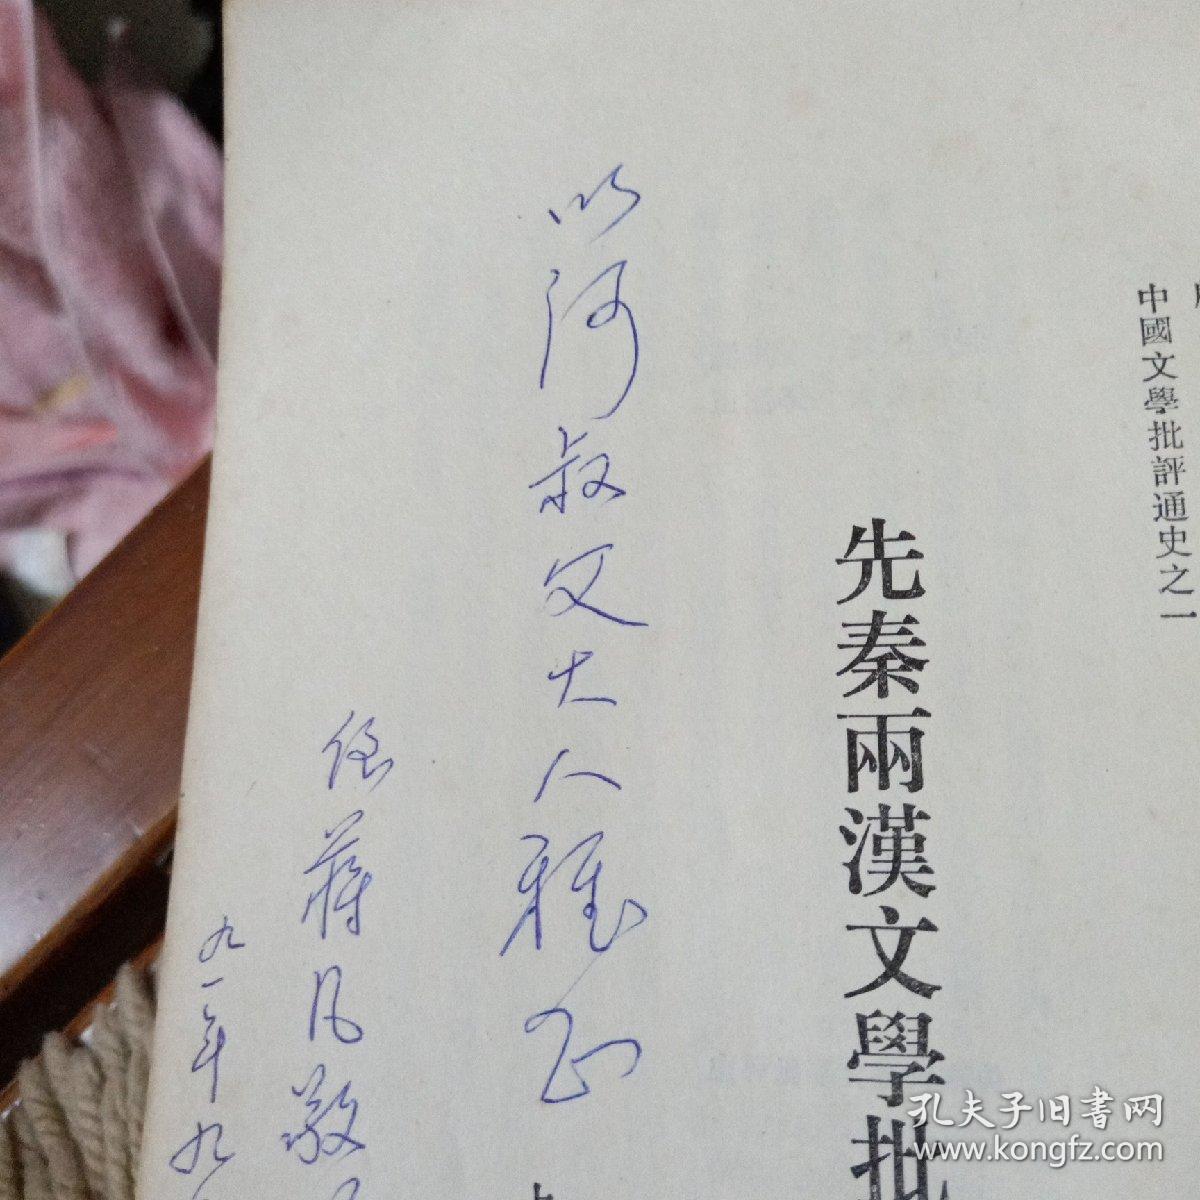 中國文學批評通史之一
先秦兩漢文學批
以河叔父大人雅正
侄蔣凡敬
九一年九
孔夫子旧书网
www.kongfz.com